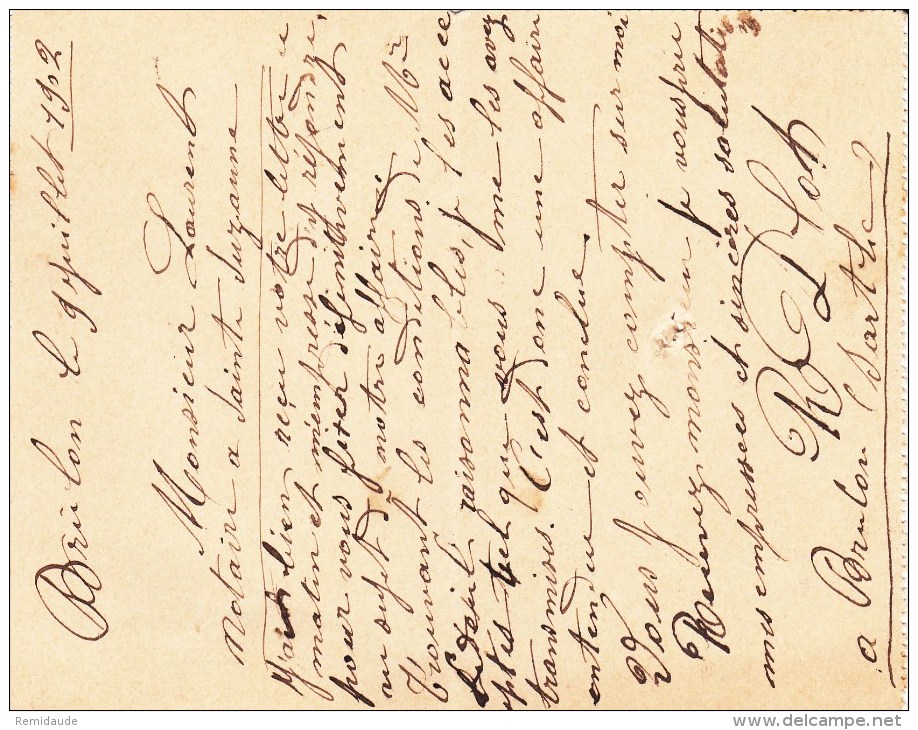 Brûlon le 9 Juillet 1902
Monsieur Laurent
Notaire a Sainte Suzanne
J'ai bien reçu votre lettre ce
matin et m'empresse d'y répondre
pour vous fixer définitivement
au sujet de notre affaire.
Trouvant les conditions de Mr
raisonnables, je les acce
pte tel que vous me les avez
transmises. C'est donc une affaire
entendue et conclue.
Vous pouvez compter sur moi
Recevez monsieur je vous prie
mes empressées et sincères salutations
a Brulon (Sarthe)
Remidaude
delcampe.net